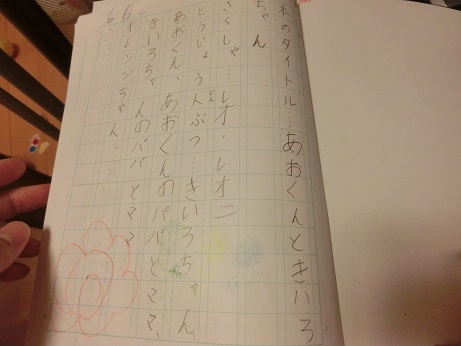 本のタイトル…あおくんときいろ
ちゃん
さくしゃ…レオ・レオニ
とうじょう人ぶつ…きいろちゃん
あおくん、あおくんのパパとママ、
きいろちゃんのパパとママ
オレンジちゃん、